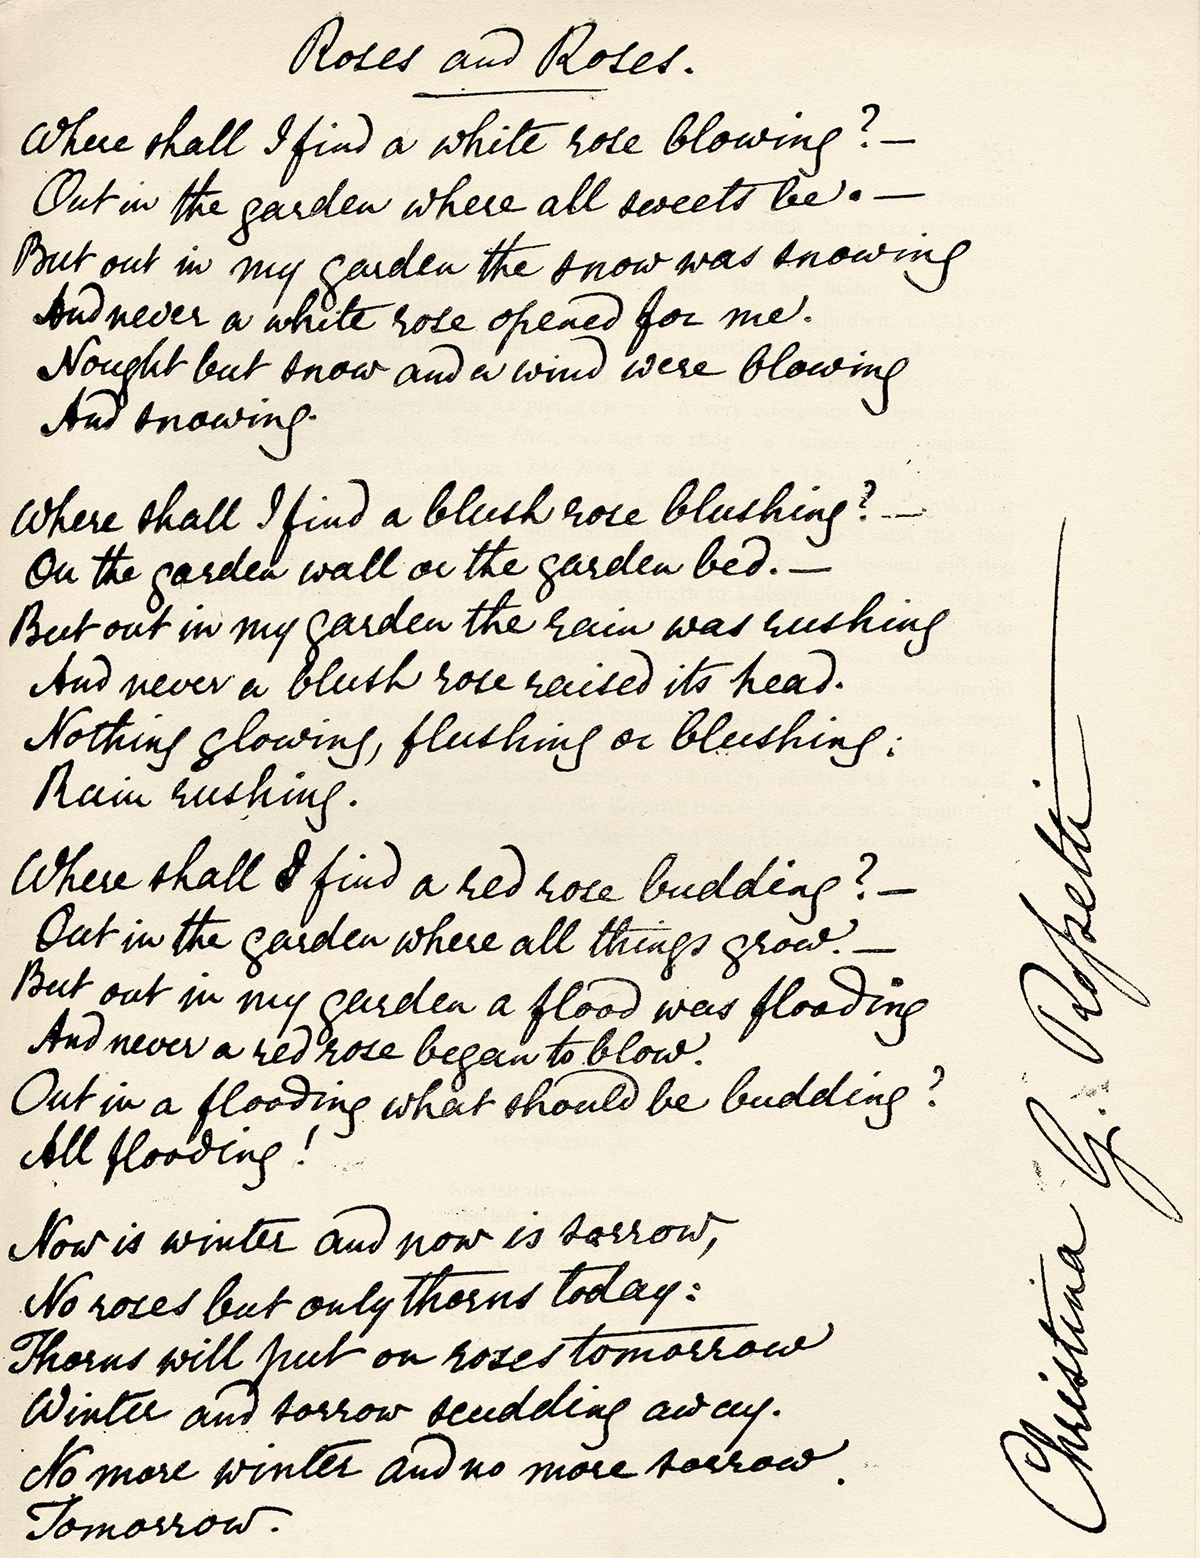 Roses and Roses.
Where shall I find a white rose blowing? —
Out in the garden where all sweets be. —
But out in my garden the snow was snowing
And never a white rose opened for me.
Nought but snow and a wind were blowing
And snowing.
Where shall I find a blush rose blushing? —
On the garden wall or the garden bed. —
But out in my garden the rain was rushing
And never a blush rose raised its head.
Nothing glowing, flushing or blushing:
Rain rushing.
Where shall I find a red rose budding? —
Out in the garden where all things grow. —
But out in my garden a flood was flooding
And never a red rose began to blow.
Out in a flooding what should be budding?
All flooding!
Now is winter and now is sorrow,
No roses but only thorns today:
Thorns will put on roses tomorrow
Winter and sorrow scudding away.
No more winter and no more sorrow
Tomorrow.
Christina G. Rossetti